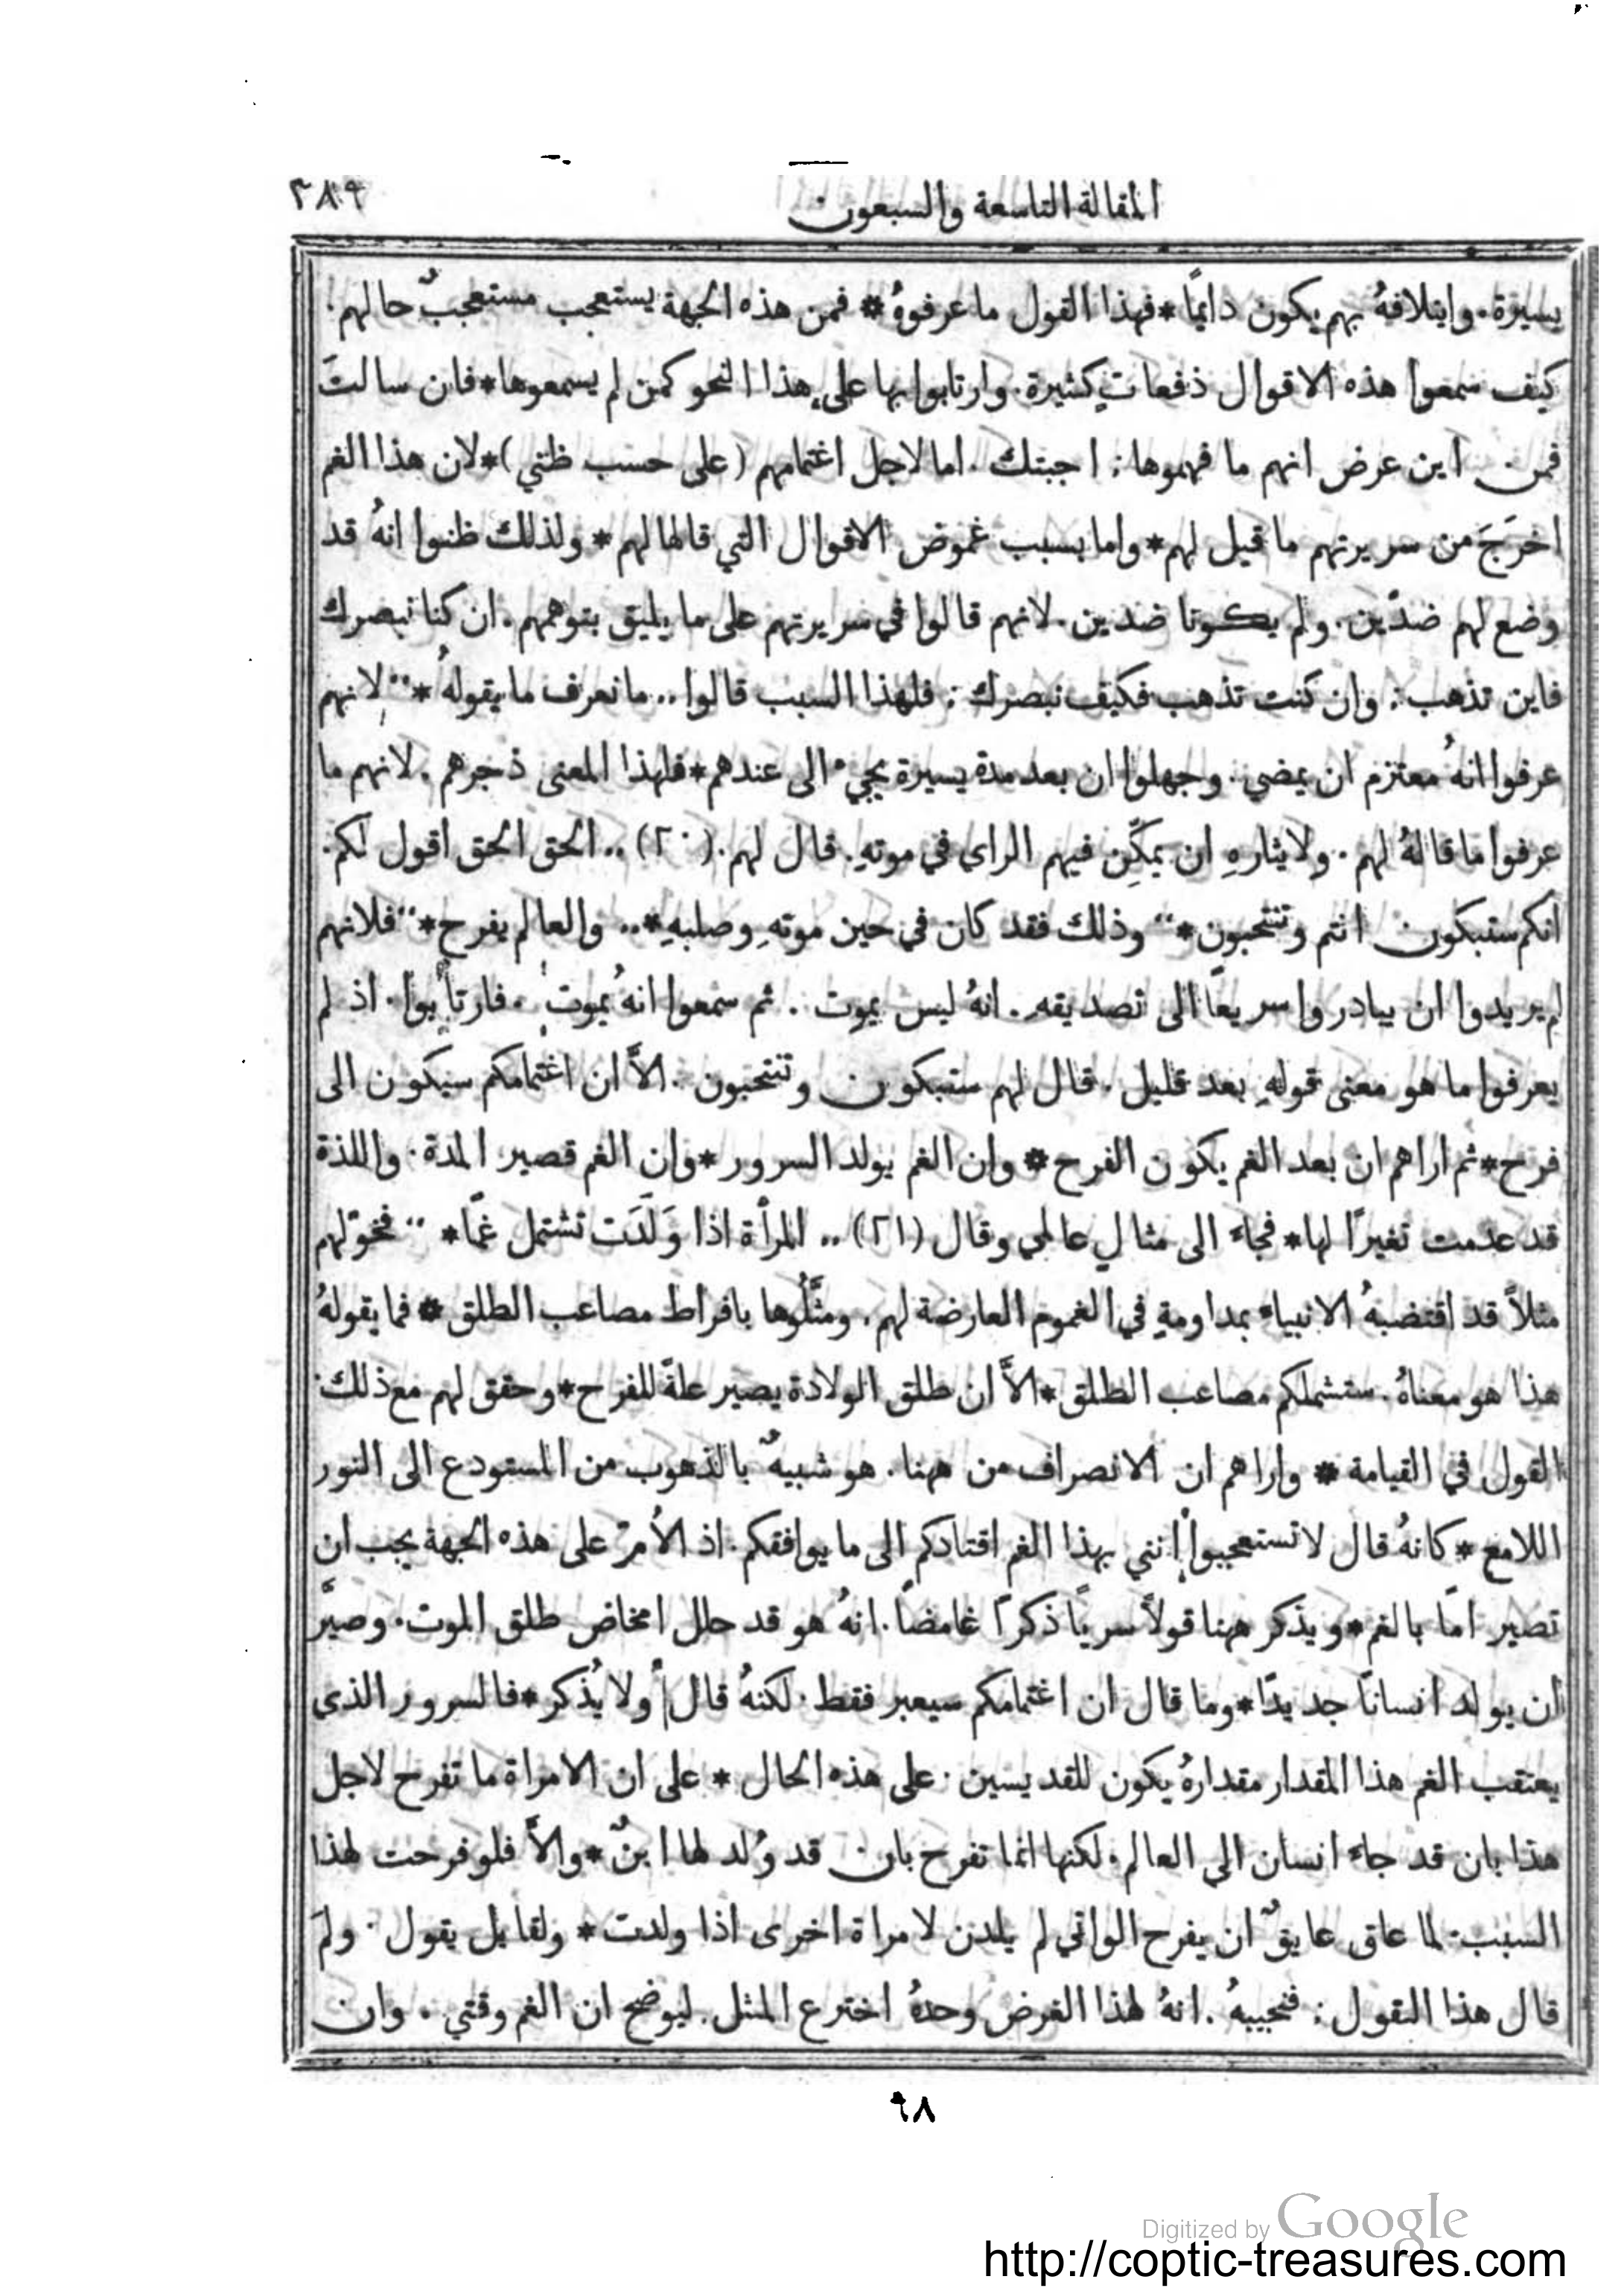 المقالة التاسعة والسبعون ٣٨٩
يسيرة. وايتلافهُ بهم يكون دايمًا * فهذا القول ما عرفوهُ * فمن هذه الجهة يستعجب مستعجبٌ حالهم.
كيف سمعوا هذه الاقوال دفعاتٍ كثيرة. وارتابوا بها على هذا النحو كمن لم يسمعوها * فان سالتَ
فمن اين عرض انهم ما فهموها: اجبتك. اما لاجل اغتمامهم (على حسب ظني) * لان هذا الغم
اخرَجَ من سريرتهم ما قيل لهم * واما بسبب غموض الاقوال التي قالها لهم * ولذلك ظنوا انهُ قد
وضع لهم ضدّين. ولم يكونا ضدين. لانهم قالوا في سريرتهم على ما يليق بتوهمهم. ان كنا نبصرك
فاين تذهب: وان كنت تذهب فكيف نبصرك: فلهذا السبب قالوا.. ما نعرف ما يقولهُ * ،، لانهم
عرفوا انهُ معتزم ان يمضي. وجهلوا ان بعد مدة يسيرة يجيء الى عندهم * فلهذا المعنى زجرهم. لانهم ما
عرفوا ما قالهُ لهم. ولايثارهِ ان يمكِّن فيهم الراي في موتهِ. قال لهم. (٢٠) .. الحق الحق اقول لكم.
انكم ستبكون انتم وتنتحبون * ،، وذلك فقد كان في حين موتهِ وصلبهِ * .. والعالم يفرح * ،، فلانهم
لم يريدوا ان يبادروا سريعًا الى تصديقهِ. انهُ ليس يموت. ثم سمعوا انهُ يموت. فارتابوا. اذ لم
يعرفوا ما هو معنى قولهِ بعد قليل. قال لهم ستبكون وتنتحبون. الاَّ ان اغتمامكم سيكون الى
فرح * ثم اراهم ان بعد الغم يكون الفرح * وان الغم يولد السرور * وان الغم قصير المدة. واللذة
قد عدمت تغيرًا لها * فجاء الى مثالٍ عالمي وقال (٢١) .. المرأة اذا وَلَدَت تشتمل غمًا * ،، فخوّلهم
مثلاً قد اقتضبهُ الانبياء بمداومةٍ في الغموم العارضة لهم. ومثَّلُوها بافراط مصاعب الطلق * فما يقولهُ
هذا هو معناهُ. ستشملكم مصاعب الطلق * الاَّ ان طلق الولادة يصير علةً للفرح * وحقق لهم مع ذلك
القول في القيامة * واراهم ان الانصراف من ههنا. هو شبيهٌ بالذهوب من المستودع الى النور
اللامع * كانهُ قال لا تستعجبوا انني بهذا الغم اقتادكم الى ما يوافقكم. اذ الأمّ على هذه الجهة يجب ان
تصير امًّا بالغم * ويذكر ههنا قولاً سريًا ذكرًا غامضًا. انهُ هو قد حلل امخاض طلق الموت. وصيَّر
ان يولد انسانًا جديدًا * وما قال ان اغتمامكم سيعبر فقط. لكنهُ قال ولا يُذكر * فالسرور الذي
يعتقب الغم هذا المقدار مقدارهُ يكون للقديسين. على هذه الحال * على ان الامراة ما تفرح لاجل
هذا بان قد جاء انسان الى العالم. لكنها انما تفرح بان قد وُلد لها ابنٌ * والاَّ فلو فرحت لهذا
السبب. لما عاق عايقٌ ان يفرح الواتي لم يلدن لامراة اخرى اذا ولدت * ولقايل يقول. ولمَ
قال هذا القول: فنجيبهُ. انهُ لهذا الغرض وحدهُ اخترع المثل. ليوضح ان الغم وقتي. وان
٩٨
Digitized by Google
http://coptic-treasures.com